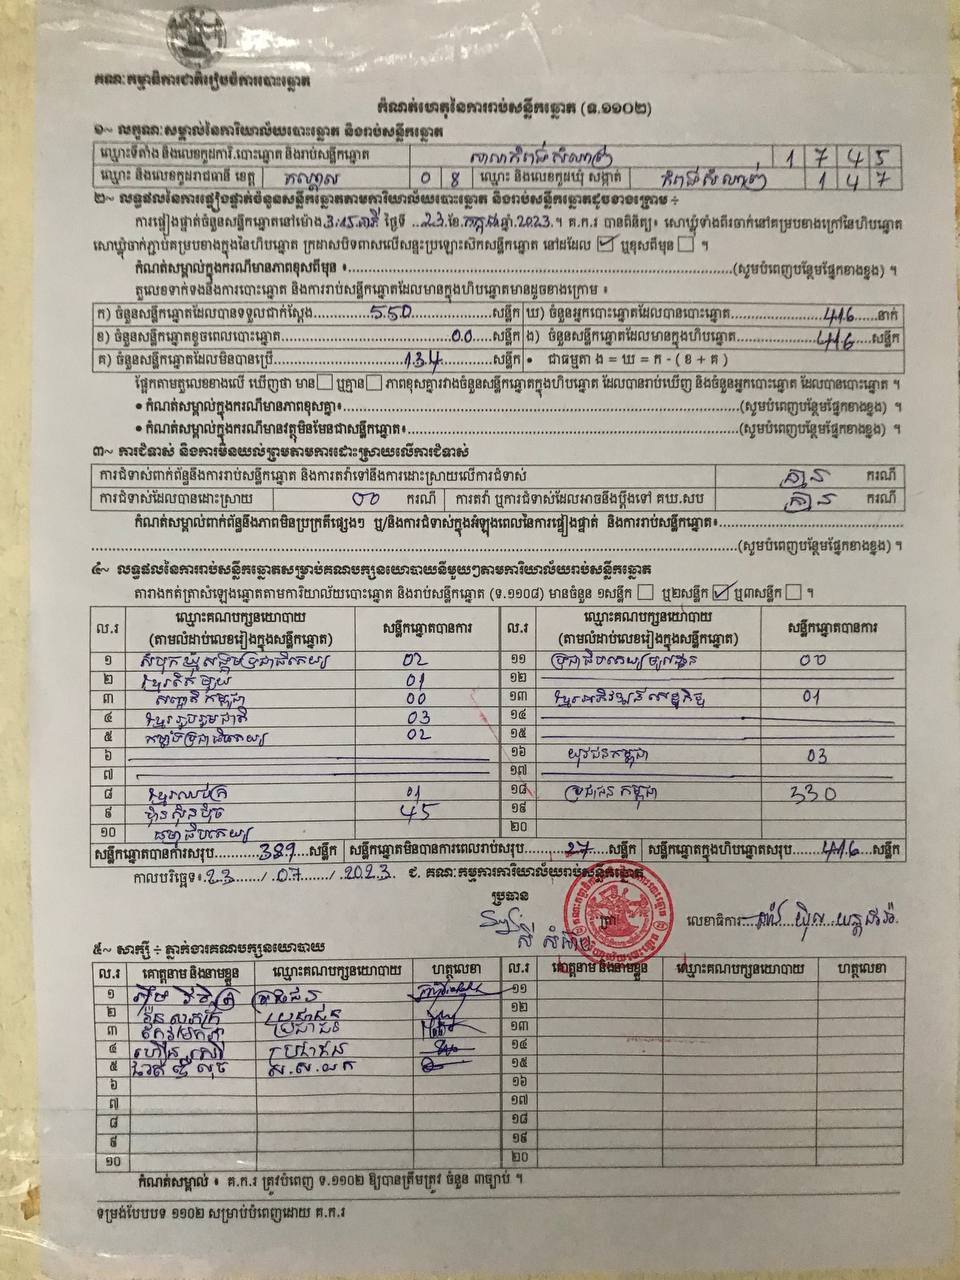 គណៈកម្មាធិការជាតិរៀបចំការបោះឆ្នោត
កំណត់ហេតុនៃការរាប់សន្លឹកឆ្នោត (ទ.១១០២)
១~ លក្ខណៈសម្គាល់នៃការិយាល័យបោះឆ្នោត និងរាប់សន្លឹកឆ្នោត
ឈ្មោះទីតាំង និងលេខកូដការិ.បោះឆ្នោត និងរាប់សន្លឹកឆ្នោត 1 7 4 5
ឈ្មោះ និងលេខកូដរាជធានី ខេត្ត កណ្តាល 0 8 ឈ្មោះ និងលេខកូដឃុំ សង្កាត់ 1 4 7
២~ លទ្ធផលនៃការផ្ទៀងផ្ទាត់ចំនួនសន្លឹកឆ្នោតតាមការិយាល័យបោះឆ្នោត និងរាប់សន្លឹកឆ្នោតដូចខាងក្រោម ÷
ការផ្ទៀងផ្ទាត់ចំនួនសន្លឹកឆ្នោតនៅម៉ោង 3:15 នាទី ថ្ងៃទី 23 ខែ កក្កដា ឆ្នាំ 2023 ។ គ.ក.រ បានពិនិត្យ៖ សោឃ្លុំទាំងពីរចាក់នៅគម្របខាងក្រៅនៃហិបឆ្នោត
សោឃ្លុំចាក់ភ្ជាប់គម្របខាងក្នុងនៃហិបឆ្នោត ក្រដាសបិទពាសលើសន្ទះប្រឡោះសិកសន្លឹកឆ្នោត នៅដដែល ✓ ឬខុសពីមុន ។
កំណត់សម្គាល់ក្នុងករណីមានភាពខុសពីមុន ៖ (សូមបំពេញបន្ថែមផ្នែកខាងខ្នង) ។
តួលេខទាក់ទងនឹងការបោះឆ្នោត និងការរាប់សន្លឹកឆ្នោតដែលមានក្នុងហិបឆ្នោតមានដូចខាងក្រោម ៖
ក) ចំនួនសន្លឹកឆ្នោតដែលបានទទួលជាក់ស្តែង 550 សន្លឹក ឃ) ចំនួនអ្នកបោះឆ្នោតដែលបានបោះឆ្នោត 416 នាក់
ខ) ចំនួនសន្លឹកឆ្នោតខូចពេលបោះឆ្នោត 00 សន្លឹក ង) ចំនួនសន្លឹកឆ្នោតដែលមានក្នុងហិបឆ្នោត 416 សន្លឹក
គ) ចំនួនសន្លឹកឆ្នោតដែលមិនបានប្រើ 134 សន្លឹក • ជាធម្មតា ង = ឃ = ក - ( ខ + គ )
ផ្អែកតាមតួលេខខាងលើ ឃើញថា មាន ឬគ្មាន ភាពខុសគ្នារវាងចំនួនសន្លឹកឆ្នោតក្នុងហិបឆ្នោត ដែលបានរាប់ឃើញ និងចំនួនអ្នកបោះឆ្នោត ដែលបានបោះឆ្នោត ។
• កំណត់សម្គាល់ក្នុងករណីមានភាពខុសគ្នា៖ (សូមបំពេញបន្ថែមផ្នែកខាងខ្នង) ។
• កំណត់សម្គាល់ក្នុងករណីមានវត្ថុមិនមែនជាសន្លឹកឆ្នោត៖ (សូមបំពេញបន្ថែមផ្នែកខាងខ្នង) ។
៣~ ការជំទាស់ និងការមិនយល់ព្រមតាមការដោះស្រាយលើការជំទាស់
ការជំទាស់ពាក់ព័ន្ធនឹងការរាប់សន្លឹកឆ្នោត និងការតវ៉ាទៅនឹងការដោះស្រាយលើការជំទាស់ គ្មាន ករណី
ការជំទាស់ដែលបានដោះស្រាយ 00 ករណី ការតវ៉ា ឬការជំទាស់ដែលអាចនឹងប្តឹងទៅ គឃ.សប គ្មាន ករណី
កំណត់សម្គាល់ពាក់ព័ន្ធនឹងភាពមិនប្រក្រតីផ្សេងៗ ឬ/និងការជំទាស់ក្នុងអំឡុងពេលនៃការផ្ទៀងផ្ទាត់ និងការរាប់សន្លឹកឆ្នោត៖
(សូមបំពេញបន្ថែមផ្នែកខាងខ្នង) ។
៤~ លទ្ធផលនៃការរាប់សន្លឹកឆ្នោតសម្រាប់គណបក្សនយោបាយនីមួយៗតាមការិយាល័យរាប់សន្លឹកឆ្នោត
តារាងកត់ត្រាសំឡេងឆ្នោតតាមការិយាល័យបោះឆ្នោត និងរាប់សន្លឹកឆ្នោត (ទ.១១០៨) មានចំនួន ១សន្លឹក ឬ២សន្លឹក ✓ ឬ៣សន្លឹក ។
ល.រ ឈ្មោះគណបក្សនយោបាយ (តាមលំដាប់លេខរៀងក្នុងសន្លឹកឆ្នោត) សន្លឹកឆ្នោតបានការ ល.រ ឈ្មោះគណបក្សនយោបាយ (តាមលំដាប់លេខរៀងក្នុងសន្លឹកឆ្នោត) សន្លឹកឆ្នោតបានការ
១ សំបុកឃ្មុំសង្គមប្រជាធិបតេយ្យ 02 ១១ 00
២ ខ្មែរតែមួយ 01 ១២
៣ សញ្ជាតិកម្ពុជា 00 ១៣ ខ្មែរអភិវឌ្ឍន៍សេដ្ឋកិច្ច 01
៤ ខ្មែររួបរួមជាតិ 03 ១៤
៥ កម្លាំងប្រជាធិបតេយ្យ 02 ១៥
៦ ១៦ យុវជនកម្ពុជា 03
៧ ១៧
៨ ខ្មែរឈប់ក្រ 01 ១៨ ប្រជាជនកម្ពុជា 330
៩ ហ៊្វុនស៊ិនប៉ិច 45 ១៩
១០ ធម្មាធិបតេយ្យ ២០
សន្លឹកឆ្នោតបានការសរុប 389 សន្លឹក សន្លឹកឆ្នោតមិនបានការពេលរាប់សរុប 27 សន្លឹក សន្លឹកឆ្នោតក្នុងហិបឆ្នោតសរុប 416 សន្លឹក
កាលបរិច្ឆេទ៖ 23 / 07 / 2023 ៩. គណៈកម្មការការិយាល័យរាប់សន្លឹកឆ្នោត
ប្រធាន ត្រា លេខាធិការ
៥~ សាក្សី ÷ ភ្នាក់ងារគណបក្សនយោបាយ
ល.រ គោត្តនាម និងនាមខ្លួន ឈ្មោះគណបក្សនយោបាយ ហត្ថលេខា ល.រ គោត្តនាម និងនាមខ្លួន ឈ្មោះគណបក្សនយោបាយ ហត្ថលេខា
១ ប្រជាជន ១១
២ ប្រជាជន ១២
៣ ប្រជាជន ១៣
៤ ប្រជាជន ១៤
៥ ១៥
៦ ១៦
៧ ១៧
៨ ១៨
៩ ១៩
១០ ២០
កំណត់សម្គាល់ ៖ គ.ក.រ ត្រូវបំពេញ ទ.១១០២ ឱ្យបានត្រឹមត្រូវ ចំនួន ៣ច្បាប់ ។
ទម្រង់បែបបទ ១១០២ សម្រាប់បំពេញដោយ គ.ក.រ